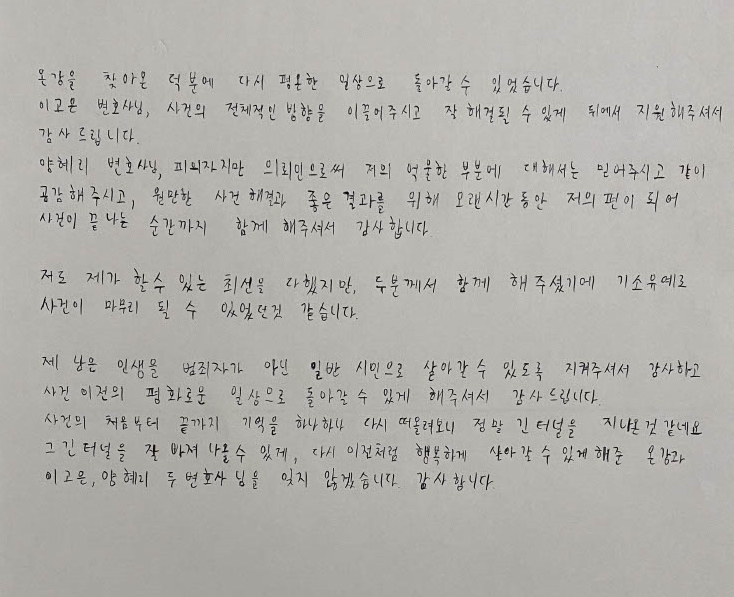 온강을 찾아온 덕분에 다시 평온한 일상으로 돌아갈 수 있었습니다.
이고은 변호사님, 사건의 전체적인 방향을 이끌어주시고 잘 해결될 수 있게 뒤에서 지원해주셔서
감사드립니다.
양혜리 변호사님, 피의자지만 의뢰인으로써 저의 억울한 부분에 대해서는 믿어주시고 같이
공감해주시고, 원만한 사건 해결과 좋은 결과를 위해 오랜시간동안 저의 편이 되어
사건이 끝나는 순간까지 함께 해주셔서 감사합니다.
저도 제가 할수 있는 최선을 다했지만, 두분께서 함께 해주셨기에 기소유예로
사건이 마무리 될 수 있었던것 같습니다.
제 남은 인생을 범죄자가 아닌 일반 시민으로 살아갈 수 있도록 지켜주셔서 감사하고
사건 이전의 평화로운 일상으로 돌아갈 수 있게 해주셔서 감사드립니다.
사건의 처음부터 끝까지 기억을 하나하나 다시 떠올려보니 정말 긴 터널을 지나온것 같네요
그 긴 터널을 잘 빠져 나올수 있게, 다시 이전처럼 행복하게 살아갈 수 있게 해준 온강과
이고은, 양혜리 두 변호사님을 잊지 않겠습니다. 감사합니다.